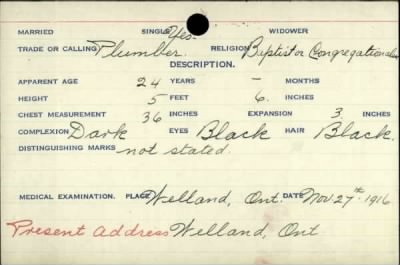 MARRIED SINGLE Yes. WIDOWER
TRADE OR CALLING Plumber. RELIGION Baptist or Congregationalist
DESCRIPTION.
APPARENT AGE 24 YEARS - MONTHS
HEIGHT 5 FEET 6. INCHES
CHEST MEASUREMENT 36 INCHES EXPANSION 3. INCHES
COMPLEXION Dark EYES Black HAIR Black.
DISTINGUISHING MARKS not stated.
MEDICAL EXAMINATION. PLACE Welland, Ont. DATE Nov 27th 1916
Present Address Welland, Ont